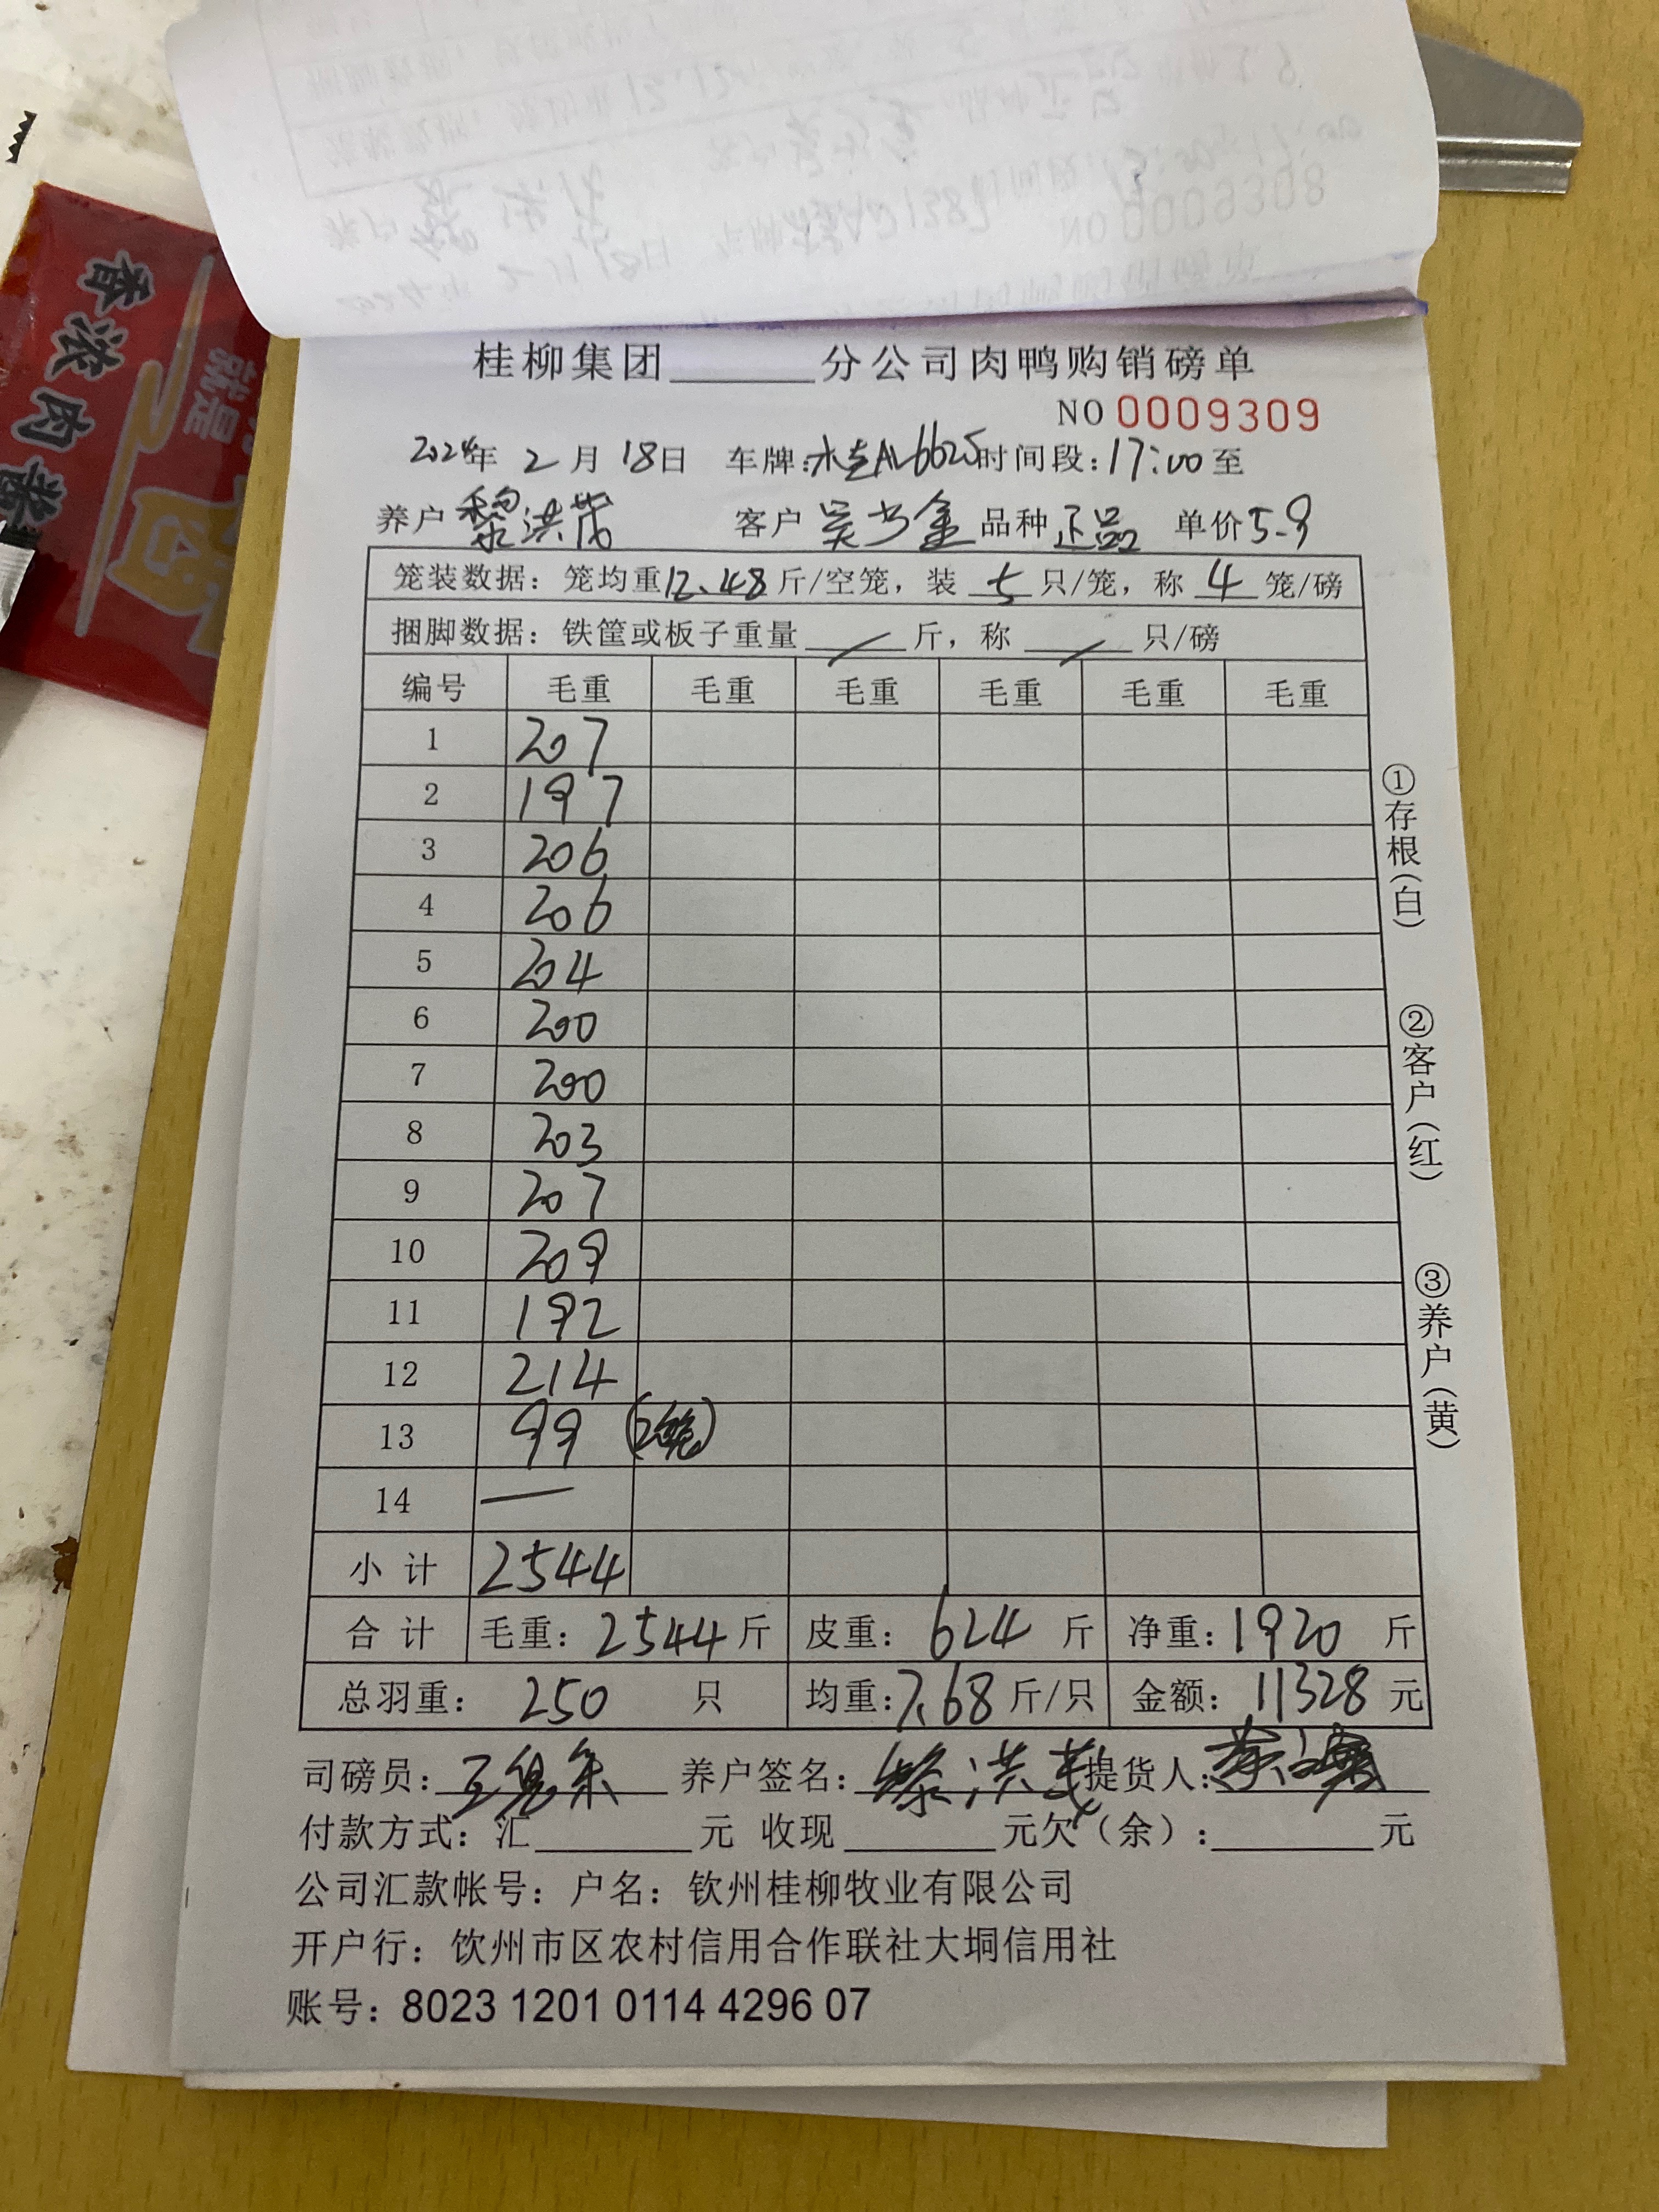 香浓肉酱
就是
桂柳集团 分公司肉鸭购销磅单
NO 0009309
2024年 2月 18日 车牌: AL6625 时间段: 17:00 至
养户 黎洪茂 客户 吴少金 品种 正品 单价 5.9
笼装数据: 笼均重 12.48 斤/空笼, 装 5 只/笼, 称 4 笼/磅
捆脚数据: 铁筐或板子重量 / 斤, 称 / 只/磅
编号 毛重 毛重 毛重 毛重 毛重 毛重
1 207
2 197
3 206
4 206
5 204
6 200
7 200
8 203
9 207
10 209
11 192
12 214
13 99 (2笼)
14 —
小计 2544
合计 毛重: 2544 斤 皮重: 624 斤 净重: 1920 斤
总羽重: 250 只 均重: 7.68 斤/只 金额: 11328 元
司磅员: 养户签名: 黎洪茂 提货人:
付款方式: 汇 元 收现 元欠(余): 元
公司汇款帐号: 户名: 钦州桂柳牧业有限公司
开户行: 钦州市区农村信用合作联社大垌信用社
账号: 8023 1201 0114 4296 07
①存根(白)
②客户(红)
③养户(黄)